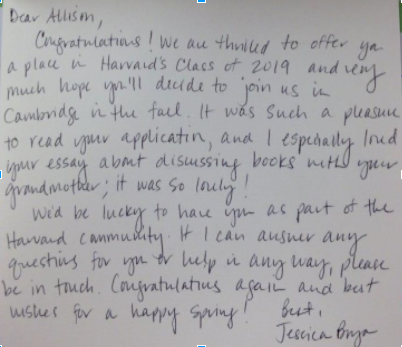 Dear Allison,
Congratulations! We are thrilled to offer you
a place in Harvard's Class of 2019 and very
much hope you'll decide to join us in
Cambridge in the fall. It was such a pleasure
to read your application, and I especially loved
your essay about discussing books with your
grandmother; it was so lovely!
We'd be lucky to have you as part of the
Harvard community. If I can answer any
questions for you or help in any way, please
be in touch. Congratulations again and best
wishes for a happy spring! Best,
Jessica